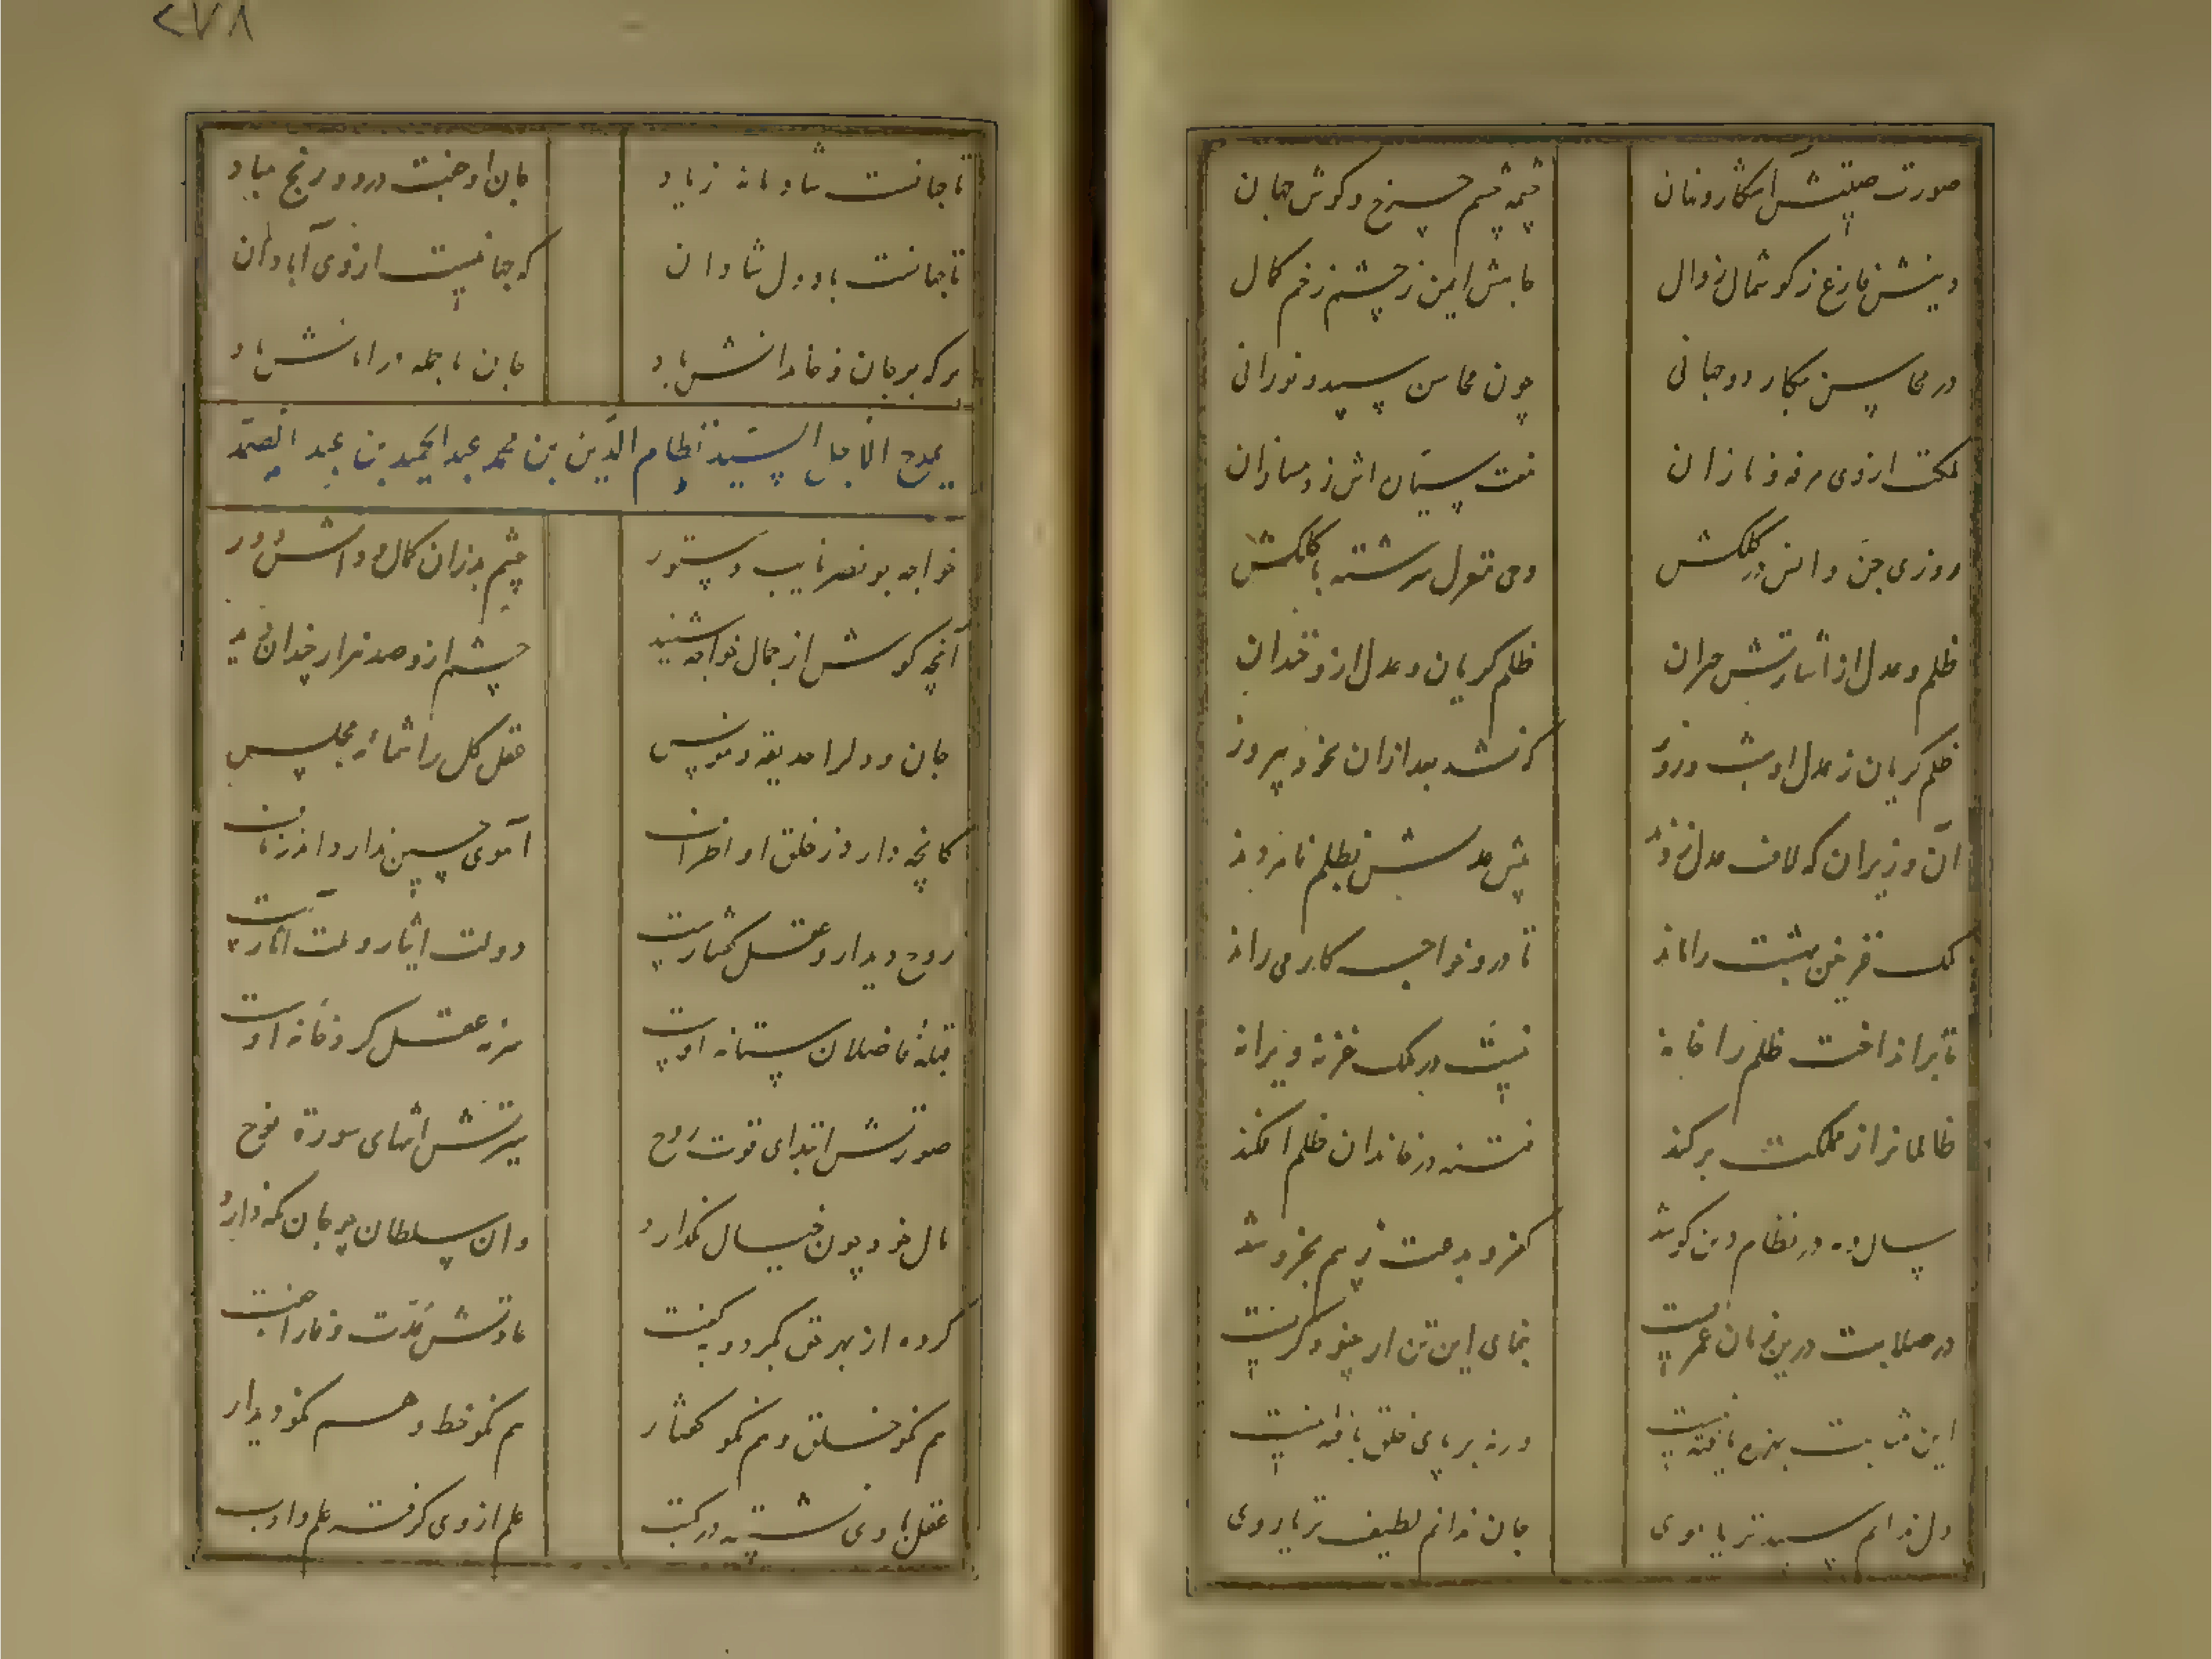 صورت صیتش آشکار و نهان چشمه چشم چرخ و گوش جهان
دینش فارغ ز گوشمال زوال جاهش ایمن ز چشم زخم کمال
در محاسن بکار دو جهانی چون محاسن سپید و نورانی
ملکت از وی مرفه و نازان
روزی جن و انس در کلکش وحی منزل سرشته با کلکش
ظلم و عدل از اشارتش حران ظلم گریان و عدل ازو خندان
ظلم گریان ز عدل او شب و روز که نشد بعد ازان بخود پیروز
آن وزیران که لاف عدل زدند پیش عدلش بظلم نامزدند
ملک غزنین بهشت را ماند تا درو خواجه کار می راند
تا برانداخت ظلم را خانه نیست در ملک غزنه ویرانه
ظالمانرا ز مملکت برکند فتنه در خاندان ظلم افکند
سال و مه در نظام دین کوشد کفر و بدعت ز بیم بخروشد
در صلابت درین زمان عمرست بنمای این تن ار چنو دگرست
این مثابت بهزه یافته نیست ورنه بر پای خلق بافته نیست
دل ندانم سپیدتر یا موی جان ندانم لطیف تر یا روی
۲۷۸
تا جهانست شادمانه زیاد جان او جفت درد و رنج مباد
تا جهانست باد دل شادان که جهانیست از وی آبادان
هرکه بر جان و خاندانش باد جان با جمله در امانش باد
یمدح الاجل السید نظام الدین بن محمد عبدالحمید بن عبد الصمد
خواجه بو نصر نایب دستور چشم بد زان کمال و دانش دور
آنچه گوش از جمال خواجه شنید چشم ازو صد هزار چندان دید
جان و دل را حدیقه و مونس عقل کل را شمامه مجلس
کانچه دارد ز خلق او اطراف آهوی چین ندارد اندر ناف
روح دیدار و عقل گفتارست دولت ایثار و ملت آثارست
قبله فاضلان ستانه اوست سرمه عقل گرد خانه اوست
صورتش ابتدای قوت روح سیرتش انتهای سورة نوح
مال خود چون خیال نگذارد وان سلطان چو جان نگه دارد
کرده از بهر حق بکرد و بگفت
هم نکو خلق و هم نکو گفتار هم نکو خط و هم نکو دیدار
عقل با وی نشسته در مکتب علم از وی گرفته علم و ادب